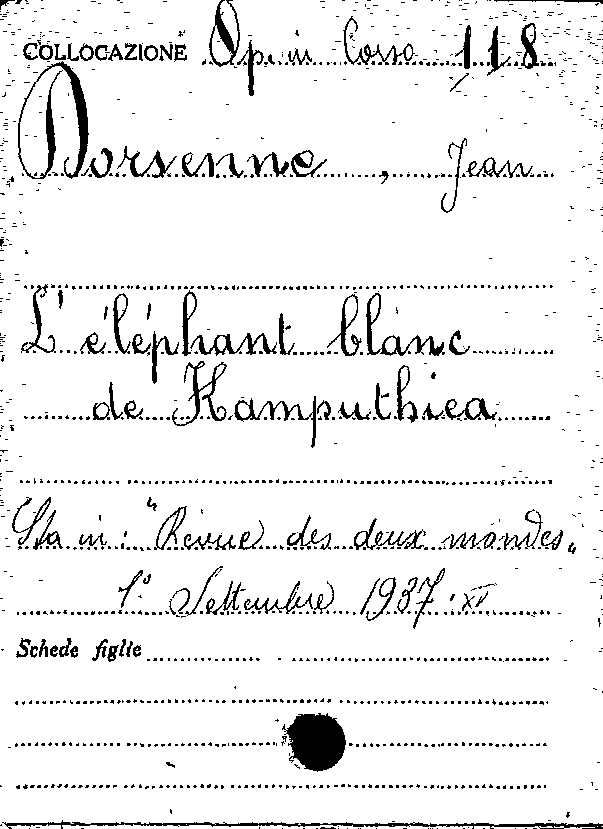 COLLOCAZIONE Op. in Corso 118
Dorsenne, Jean
L'éléphant blanc
de Kamputhiea
Sta in: "Revue des deux mondes"
1° Settembre 1937. XV
Schede figlie